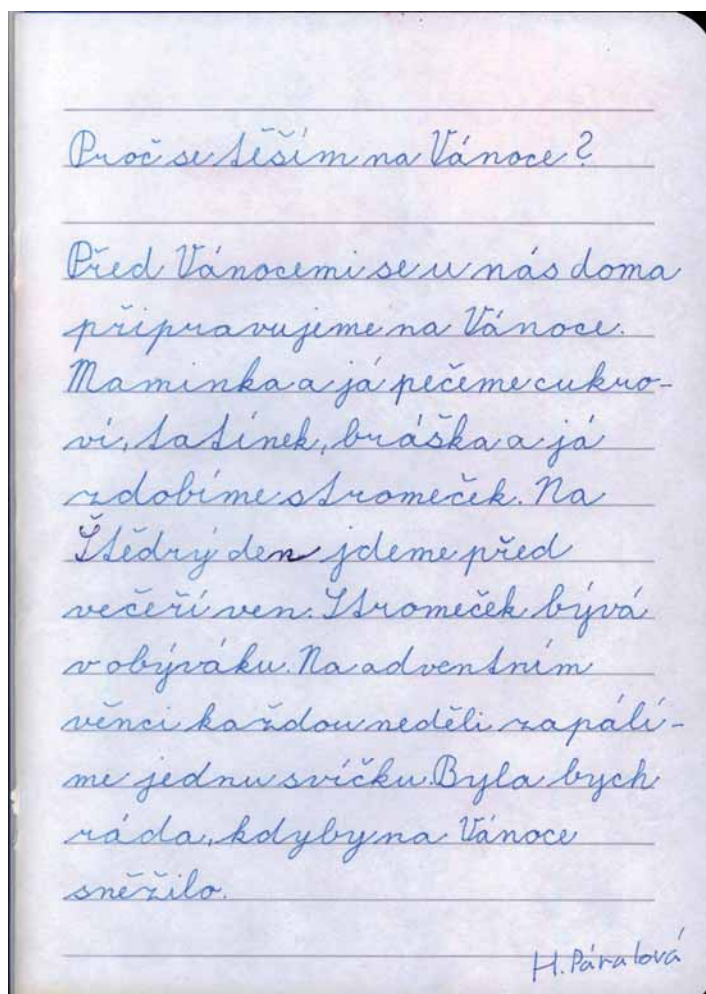 Proč se těším na Vánoce?
Před Vánocemi se u nás doma
připravujeme na Vánoce.
Maminka a já pečeme cukro-
ví, tatínek, bráška a já
zdobíme stromeček. Na
Štědrý den jdeme před
večeří ven. Stromeček bývá
v obýváku. Na adventním
věnci každou neděli zapálí-
me jednu svíčku. Byla bych
ráda, kdyby na Vánoce
sněžilo.
H. Páralová